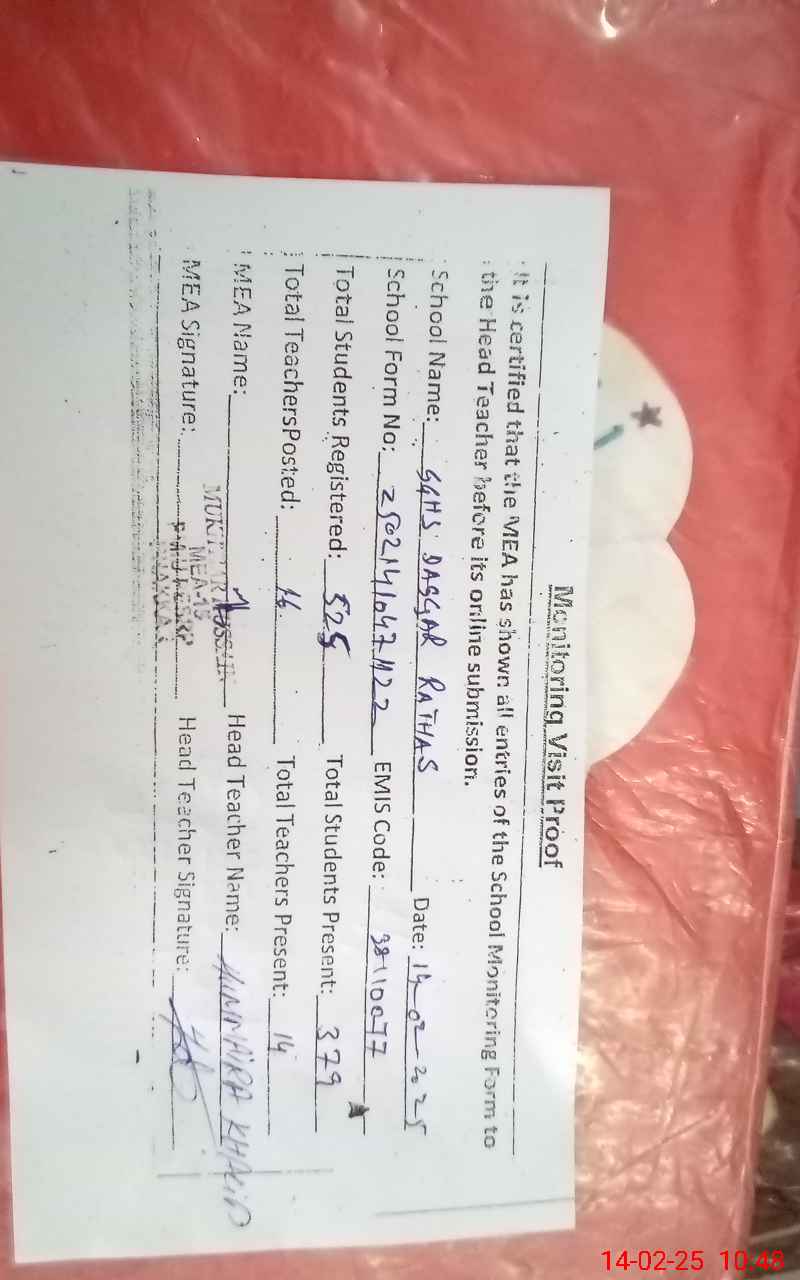 Monitoring Visit Proof
It is certified that the MEA has shown all entries of the School Monitoring Form to
the Head Teacher before its online submission.
School Name: GGHS DAGGAR RATHAS Date: 14-02-2025
School Form No: EMIS Code: 38110077
Total Students Registered: 525 Total Students Present: 379
Total TeachersPosted: 16 Total Teachers Present: 14
MEA Name: HUSSAIN Head Teacher Name: HUMAIRA KHALID
MEA-15
MEA Signature: Head Teacher Signature:
BHAKKAR
14-02-25 10:48